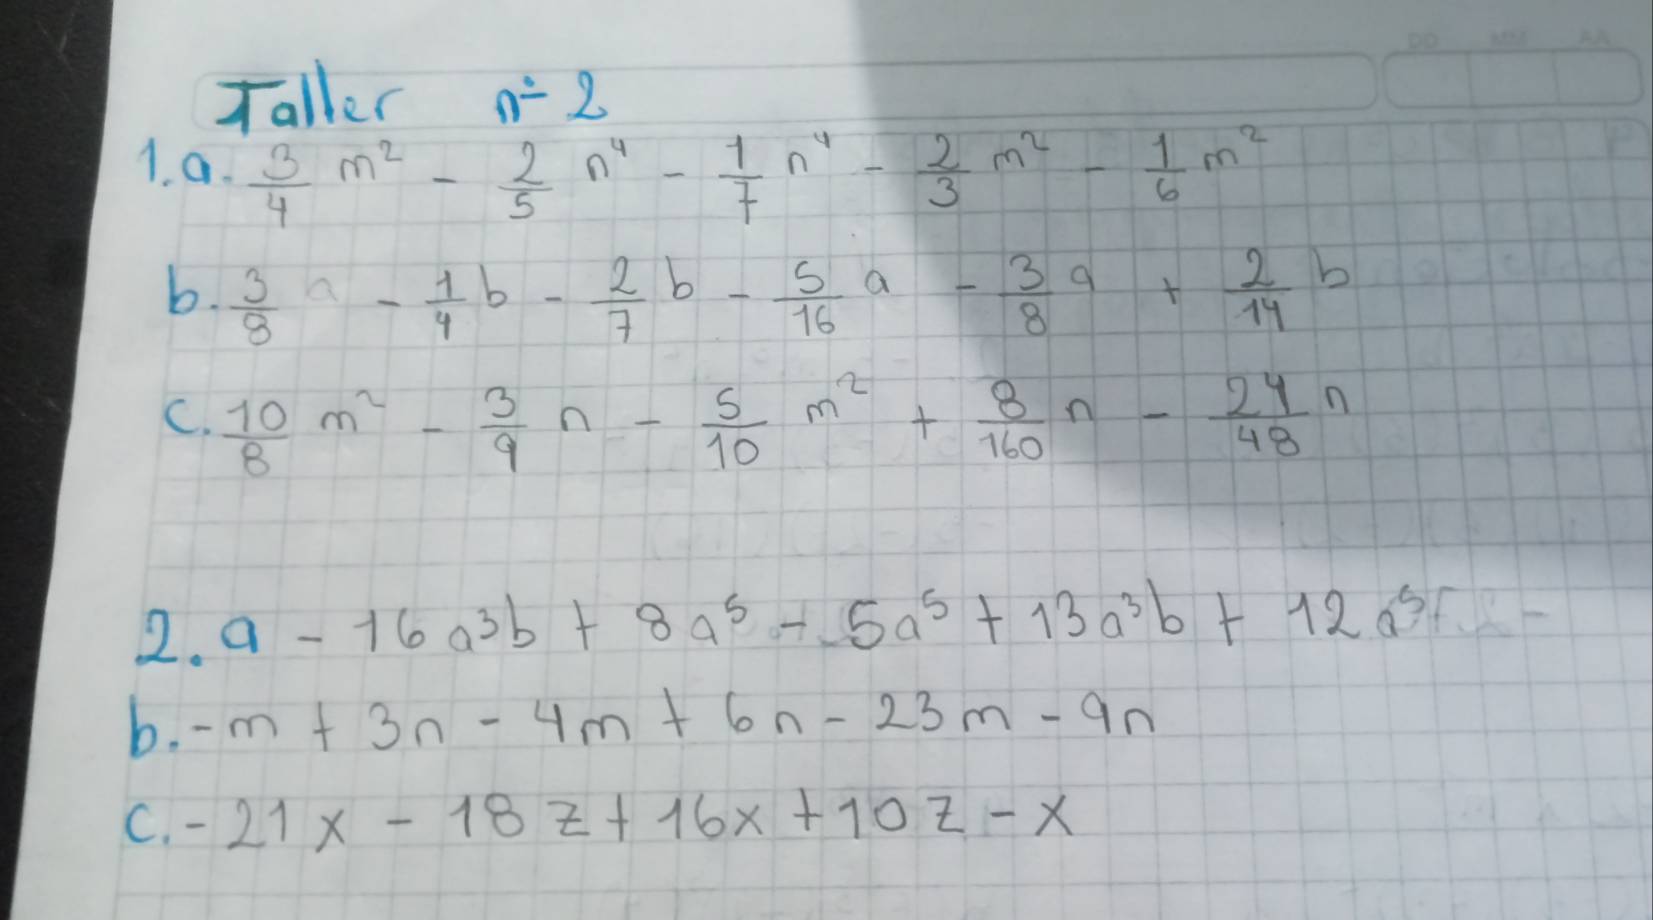 DD MM AA
Taller n÷ 2
1.a. 3/4 m² - 2/5 n⁴ - 1/7 n⁴ - 2/3 m² - 1/6 m²
b. 3/8 a - 1/4 b - 2/7 b - 5/16 a - 3/8 a + 2/14 b
c. 10/8 m² - 3/9 n - 5/10 m² + 8/160 n - 24/48 n
2. a - 16a³b + 8a⁵ - 5a⁵ + 13a³b + 12a⁵
b. -m + 3n - 4m + 6n - 23m - 9n
c. -21x - 18z + 16x + 10z - x